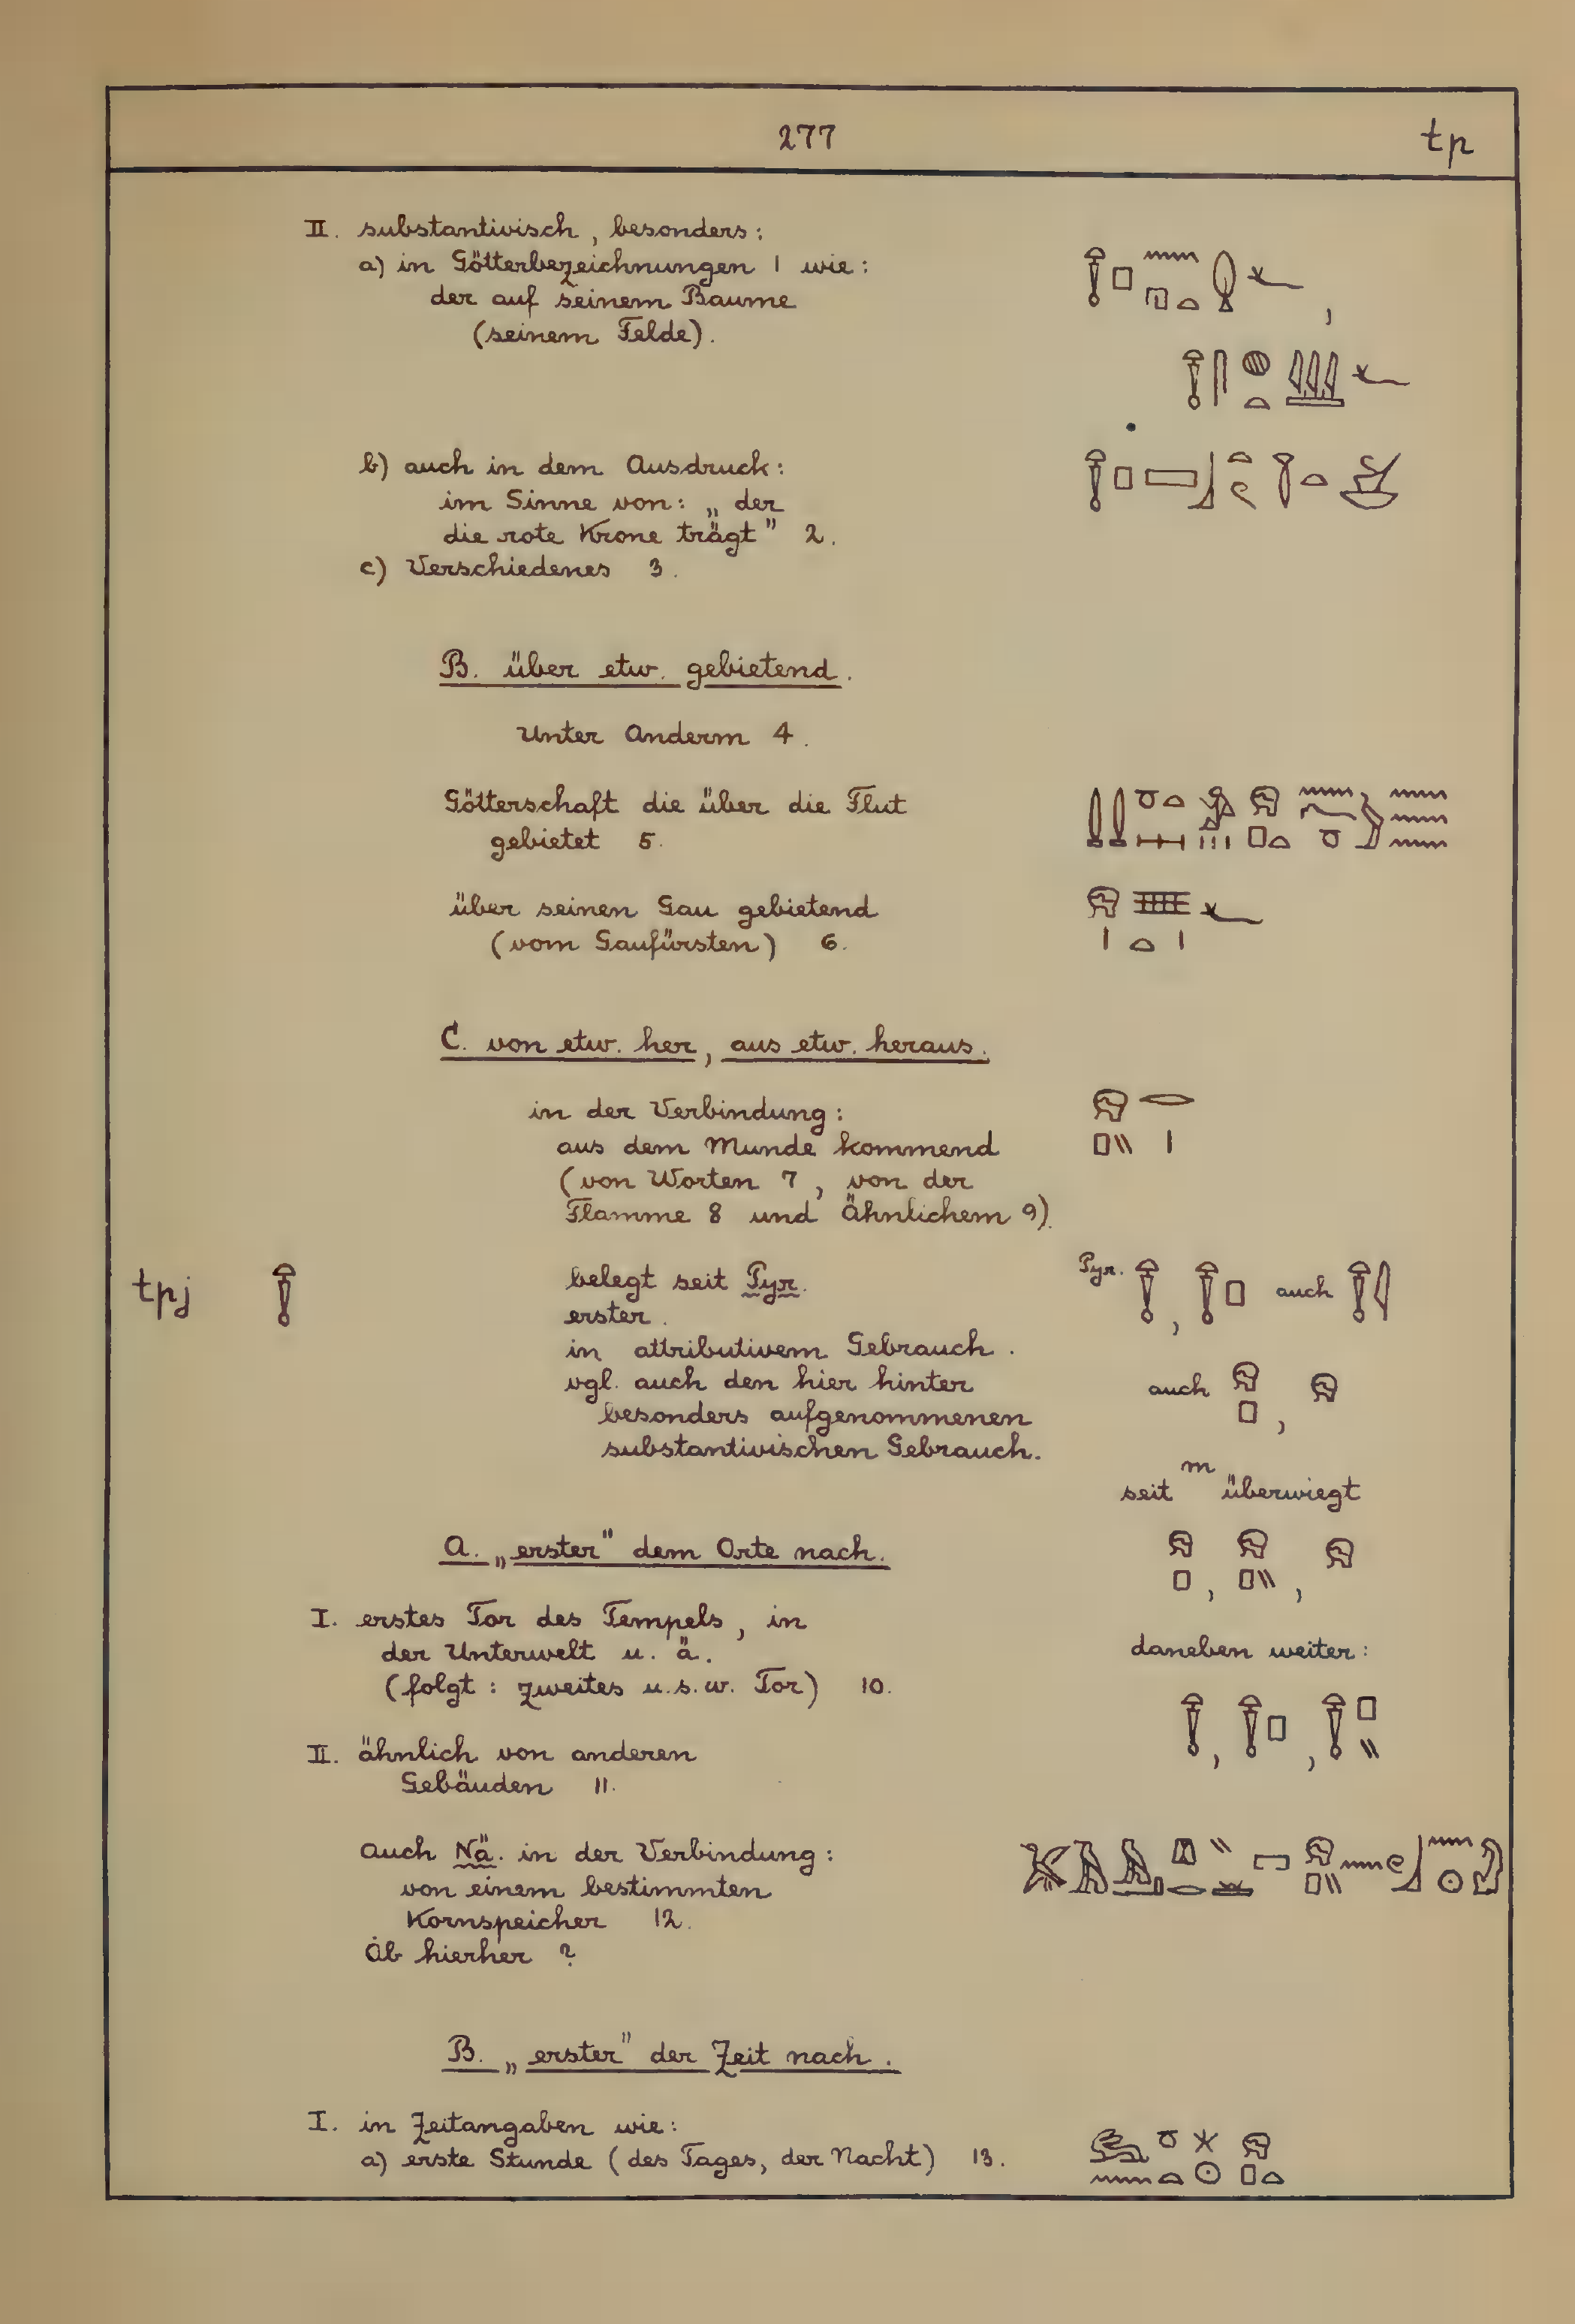 277
tp
II. substantivisch, besonders:
a) in Götterbezeichnungen 1 wie:
der auf seinem Baume
(seinem Felde).
b) auch in dem Ausdruck:
im Sinne von: „der
die rote Krone trägt" 2.
c) Verschiedenes 3.
B. über etw. gebietend.
Unter Anderm 4.
Götterschaft die über die Flut
gebietet 5.
über seinen Gau gebietend
(vom Gaufürsten) 6.
C. von etw. her, aus etw. heraus.
in der Verbindung:
aus dem Munde kommend
(von Worten 7, von der
Flamme 8 und Ähnlichem 9).
tpj
belegt seit Pyr.
erster.
in attributivem Gebrauch.
vgl. auch den hier hinter
besonders aufgenommenen
substantivischen Gebrauch.
Pyr. , auch
auch ,
seit m überwiegt
, ,
daneben weiter:
, ,
A. „erster" dem Orte nach.
I. erstes Tor des Tempels, in
der Unterwelt u. ä.
(folgt: zweites u.s.w. Tor) 10.
II. ähnlich von anderen
Gebäuden 11.
Auch Nä. in der Verbindung:
von einem bestimmten
Kornspeicher 12.
Ob hierher ?
B. „erster" der Zeit nach.
I. in Zeitangaben wie:
a) erste Stunde (des Tages, der Nacht) 13.